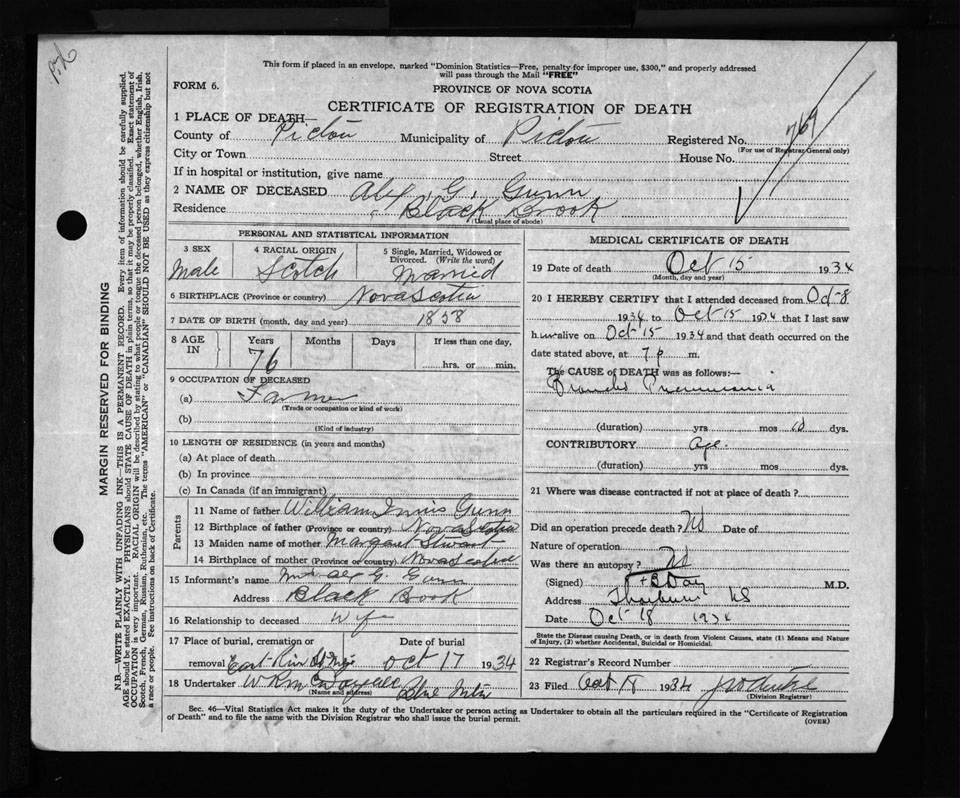 This form if placed in an envelope, marked "Dominion Statistics—Free, penalty for improper use, $300," and properly addressed
will pass through the Mail "FREE"
FORM 6.
PROVINCE OF NOVA SCOTIA
CERTIFICATE OF REGISTRATION OF DEATH
1 PLACE OF DEATH—
County of Pictou Municipality of Pictou Registered No. 769
(For use of Registrar General only)
City or Town Street House No.
If in hospital or institution, give name
2 NAME OF DECEASED Alex. G. Gunn
Residence Black Brook
(Usual place of abode)
PERSONAL AND STATISTICAL INFORMATION
3 SEX 4 RACIAL ORIGIN 5 Single, Married, Widowed or
Divorced. (Write the word)
Male Scotch Married
6 BIRTHPLACE (Province or country) Nova Scotia
7 DATE OF BIRTH (month, day and year) 1858
8 AGE IN Years Months Days If less than one day,
76 hrs. or min.
9 OCCUPATION OF DECEASED
(a) Farmer
(Trade or occupation or kind of work)
(b)
(Kind of industry)
10 LENGTH OF RESIDENCE (in years and months)
(a) At place of death
(b) In province
(c) In Canada (if an immigrant)
Parents
11 Name of father William Innis Gunn
12 Birthplace of father (Province or country) Nova Scotia
13 Maiden name of mother Margaret Stewart
14 Birthplace of mother (Province or country) Nova Scotia
15 Informant's name Mrs Alex G. Gunn
Address Black Brook
16 Relationship to deceased Wife
17 Place of burial, cremation or Date of burial
removal East River St Mary's Oct 17 1934
18 Undertaker Blue Mtn
(Name and address)
MEDICAL CERTIFICATE OF DEATH
19 Date of death Oct 15 1934
(Month, day and year)
20 I HEREBY CERTIFY that I attended deceased from Oct-8
1934 to Oct 15 1934 that I last saw
h im alive on Oct 15 1934 and that death occurred on the
date stated above, at 7 p m.
The CAUSE OF DEATH was as follows:—
Broncho Pneumonia
(duration) yrs mos 10 dys.
CONTRIBUTORY Age.
(duration) yrs mos dys.
21 Where was disease contracted if not at place of death?
Did an operation precede death? No Date of
Nature of operation
Was there an autopsy? No
(Signed) Day M.D.
Address Thorburn NS
Date Oct 18 1934
State the Disease causing Death, or in death from Violent Causes, state (1) Means and Nature
of Injury, (2) whether Accidental, Suicidal or Homicidal.
22 Registrar's Record Number
23 Filed Oct 18 1934
(Division Registrar)
Sec. 46—Vital Statistics Act makes it the duty of the Undertaker or person acting as Undertaker to obtain all the particulars required in the "Certificate of Registration
of Death" and to file the same with the Division Registrar who shall issue the burial permit.
(OVER)
MARGIN RESERVED FOR BINDING
N.B.—WRITE PLAINLY WITH UNFADING INK—THIS IS A PERMANENT RECORD. Every item of information should be carefully supplied.
AGE should be stated EXACTLY. PHYSICIANS should STATE CAUSE OF DEATH in plain terms, so that it may be properly classified. Exact statement of
OCCUPATION is very important. RACIAL ORIGIN will be described by stating to what people or tongue the deceased person belonged, whether English, Irish,
Scotch, French, German, Russian, Ruthenian, etc. The terms "AMERICAN" or "CANADIAN" SHOULD NOT BE USED as they express citizenship but not
a race or people. See instructions on back of Certificate.